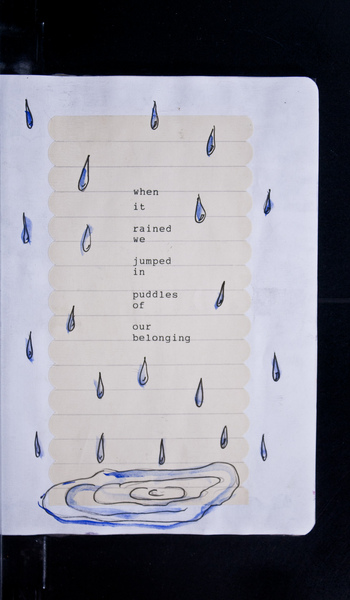 when
it
rained
we
jumped
in
puddles
of
our
belonging